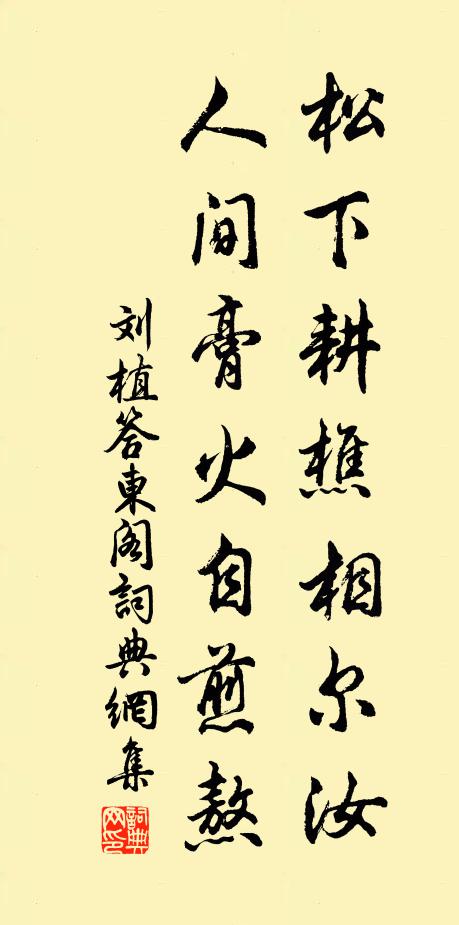 松下耕樵相尔汝
人间膏火自煎熬
刘植答東阁詞典網集
詞典网印